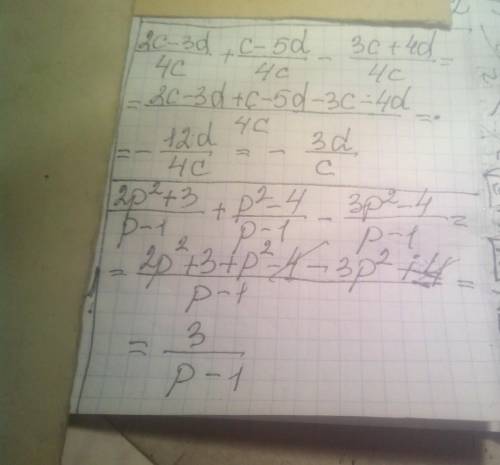 (2c-3d)/4c + (c-5d)/4c - (3c+4d)/4c =
= (2c-3d+c-5d-3c-4d)/4c =
= - 12d/4c = - 3d/c
(2p²+3)/(p-1) + (p²-4)/(p-1) - (3p²-4)/(p-1) =
= (2p²+3+p²-4-3p²+4)/(p-1) =
= 3/(p-1)